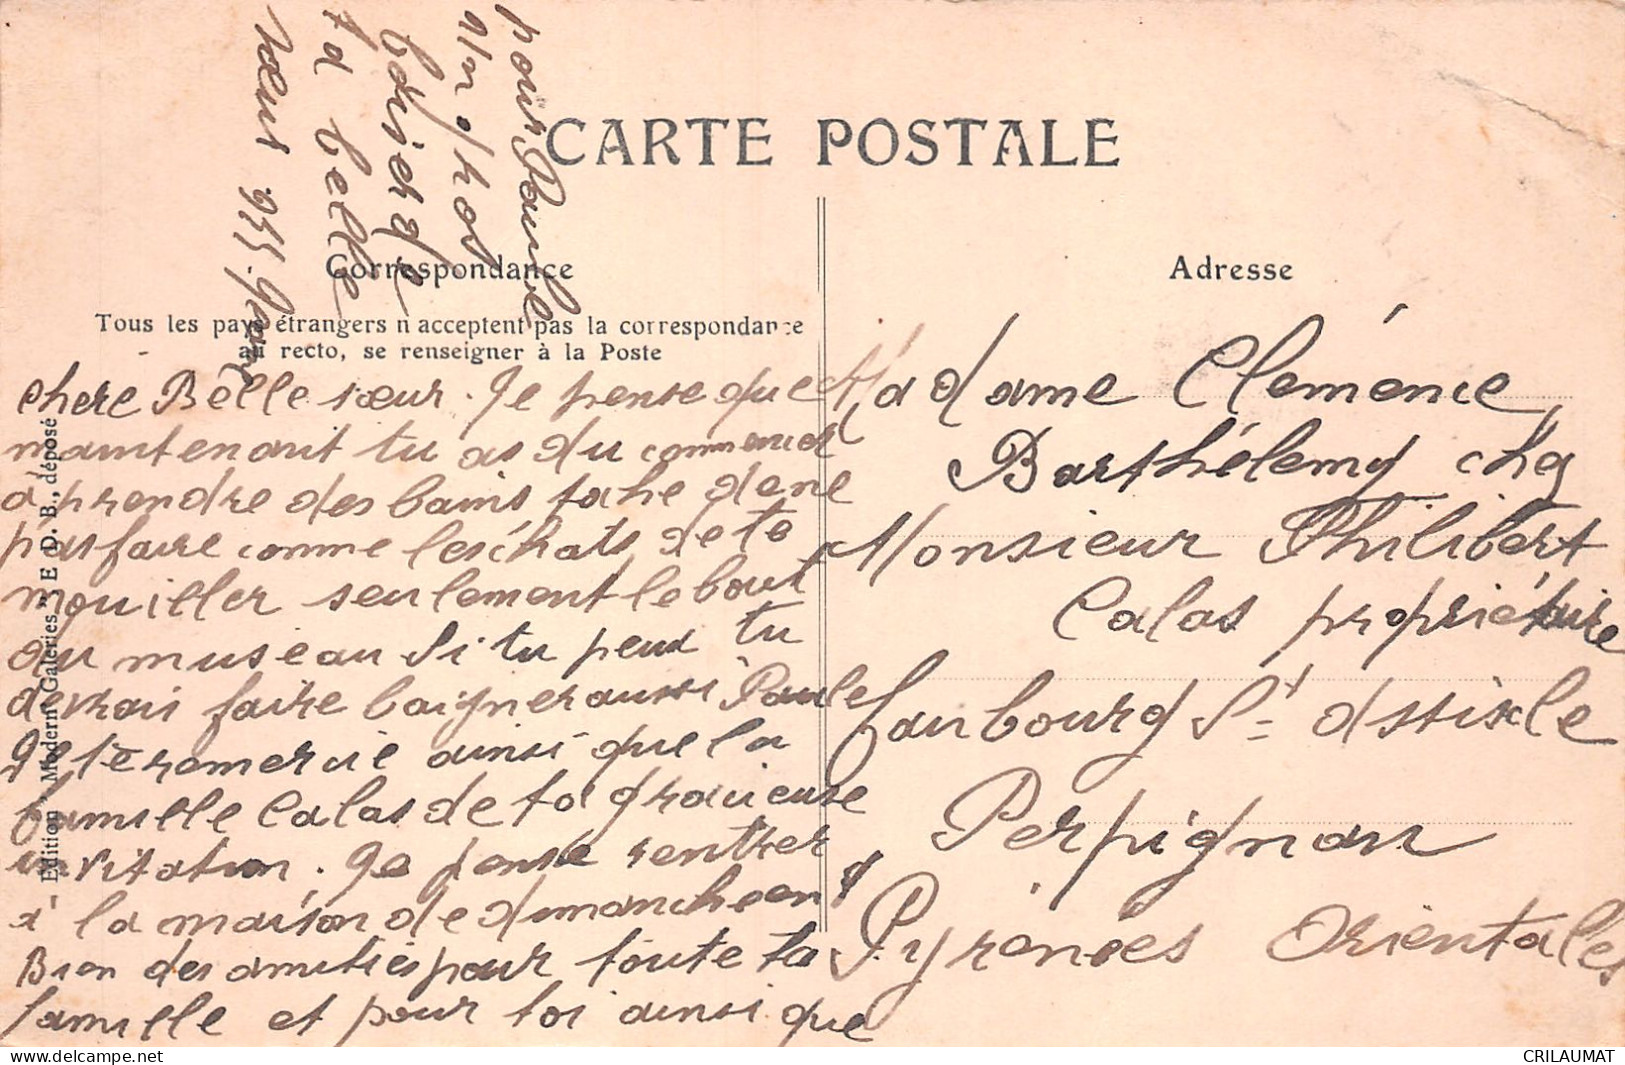 CARTE POSTALE
Correspondance
Adresse
Tous les pays étrangers n'acceptent pas la correspondance
au recto, se renseigner à la Poste
chere Belle sœur. Je pense que
maintenant tu as du commencer
à prendre des bains tahe de ne
pas faire comme les chats de te
mouiller seulement le bout
du museau si tu peux tu
devrais faire baigner aussi Paule
Je te remercie ainsi que la
famille Calas de ta gracieuse
invitation. Je pense rentrer
à la maison de dimanche en 8
Bien des amitiés pour toute ta
famille et pour toi ainsi que
pour Paule
un gros
baiser de
ta belle
sœur
Madame Clémence
Barthélemy chez
Monsieur Philibert
Calas propriétaire
faubourg St Assiscle
Perpignan
Pyrénées Orientales
Edition "Modern' Galeries" E. D. B., déposé
CRILAUMAT